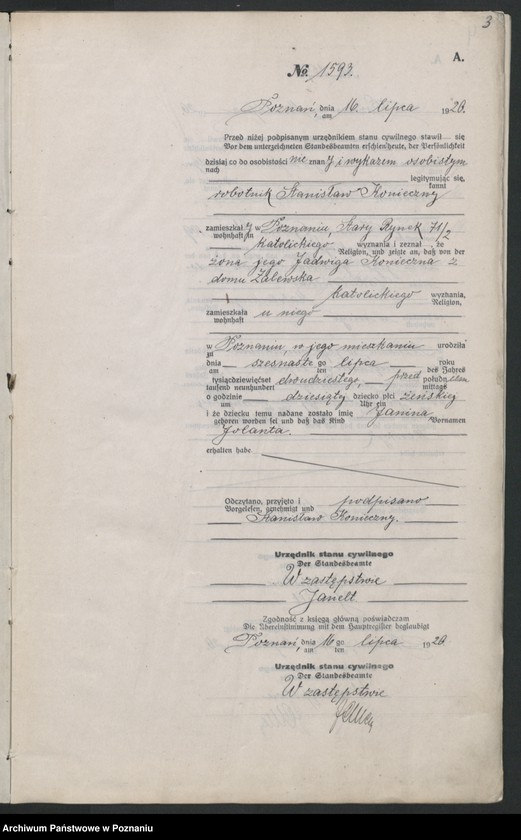 3
A.
No. 1593.
Poznań, dnia 16. lipca 1920.
am
Przed niżej podpisanym urzędnikiem stanu cywilnego stawił się
Vor dem unterzeichneten Standesbeamten erschien heute, der Persönlichkeit
dzisiaj co do osobistości nie znany i wykazem osobistym
nach
legitymując się,
kannt
robotnik Stanisław Konieczny
zamieszkały w Poznaniu, Stary Rynek 71/2
wohnhaft in
katolickiego wyznania i zeznał, że
Religion, und zeigte an, daß von der
żona jego Jadwiga Konieczna z
domu Zalewska
katolickiego wyznania,
Religion,
zamieszkała u niego
wohnhaft
w Poznaniu, w jego mieszkaniu urodziła
zu
dnia szesnastego lipca roku
am ten des Jahres
tysiącdziewięćset dwudziestego, przed południem
tausend neunhundert mittags
o godzinie dziesiątej dziecko płci żeńskiej
um Uhr ein
i że dziecku temu nadane zostało imię Janina
geboren worden sei und daß das Kind Vornamen
Jolanta.
erhalten habe
Odczytano, przyjęto i podpisano
Vorgelesen, genehmigt und
Stanisław Konieczny.
Urzędnik stanu cywilnego
Der Standesbeamte
W zastępstwie
Janelt
Zgodność z księgą główną poświadczam
Die Übereinstimmung mit dem Hauptregister beglaubigt
Poznań, dnia 16 go lipca 1920.
am ten
Urzędnik stanu cywilnego
Der Standesbeamte
W zastępstwie
Archiwum Państwowe w Poznaniu